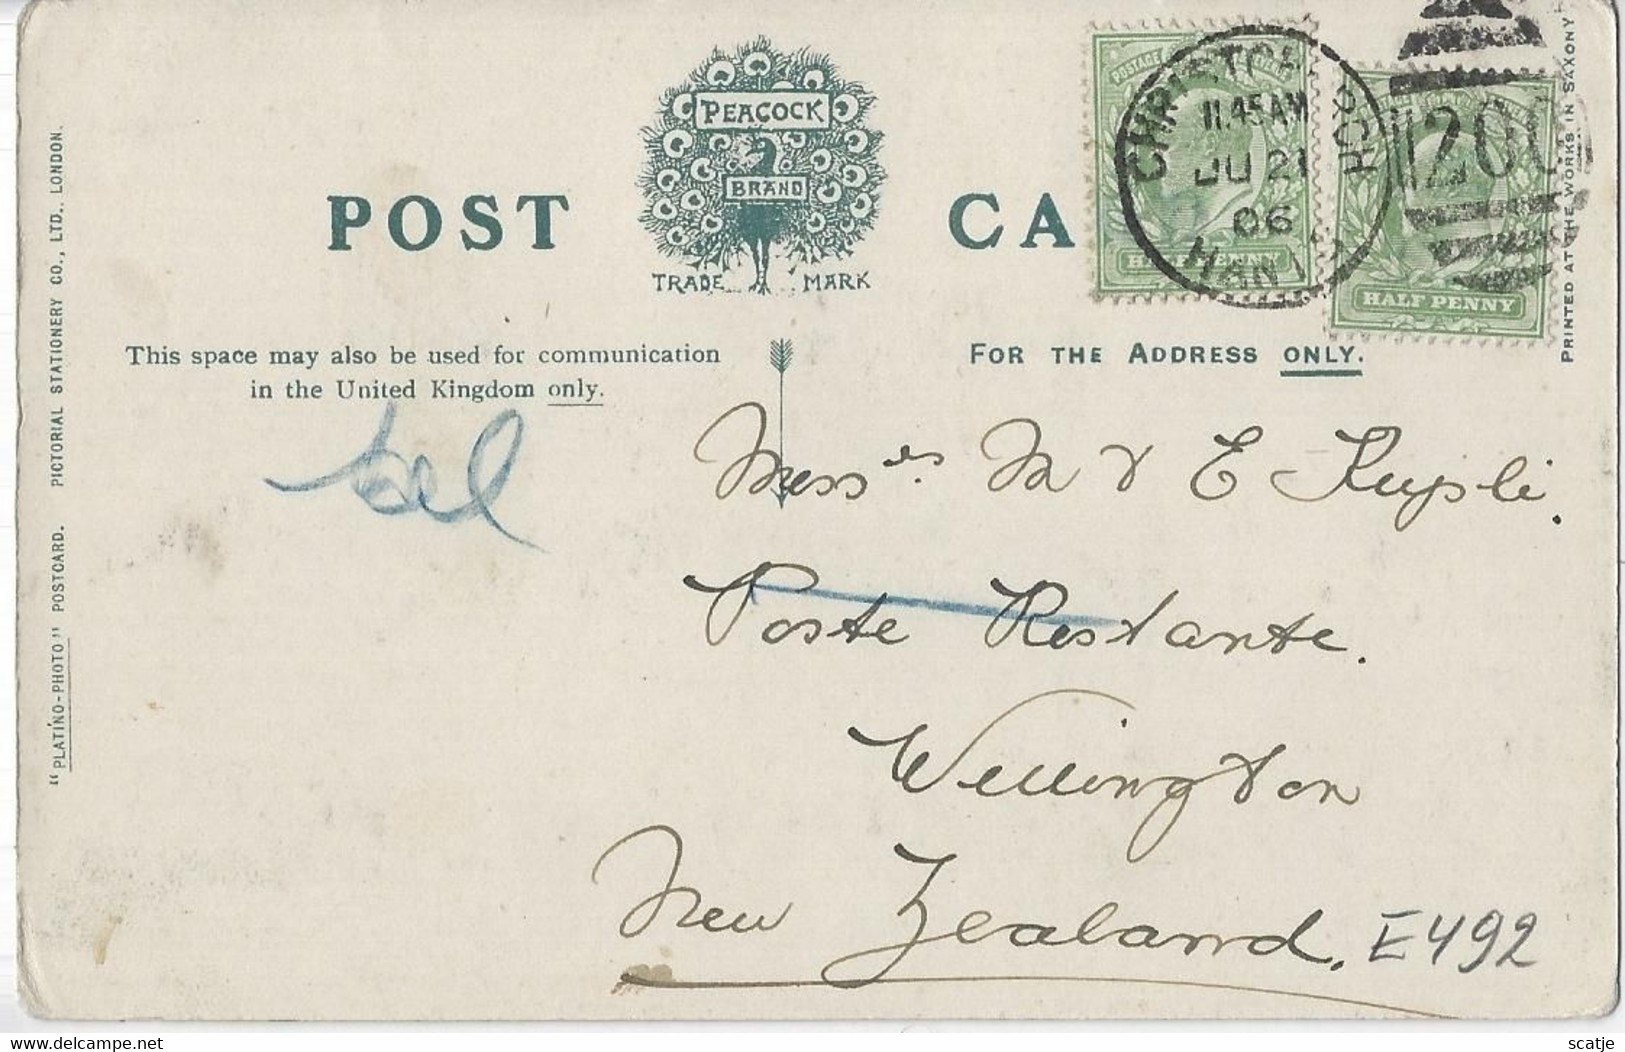 POST CA
PEACOCK
BRAND
TRADE MARK
CHRISTCH RCH
11.45AM
JU 21
06
HANTS
POSTAGE
HALF PENNY
HALF PENNY
This space may also be used for communication
in the United Kingdom only.
FOR THE ADDRESS ONLY.
Mess rs M & E
Poste Restante.
Wellington
New Zealand.
E492
"PLATINO-PHOTO" POSTCARD. PICTORIAL STATIONERY CO., LTD., LONDON.
PRINTED AT THE WORKS IN SAXONY
delcampe.net
scatje